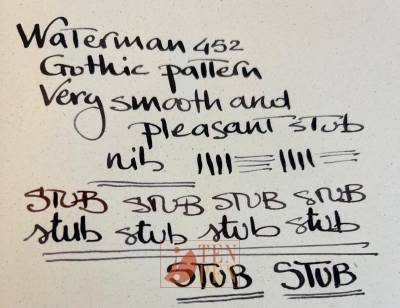 Waterman 452
Gothic pattern
Very smooth and
pleasant stub
nib
STUB STUB STUB STUB
stub stub stub stub
TEN
STUB STUB